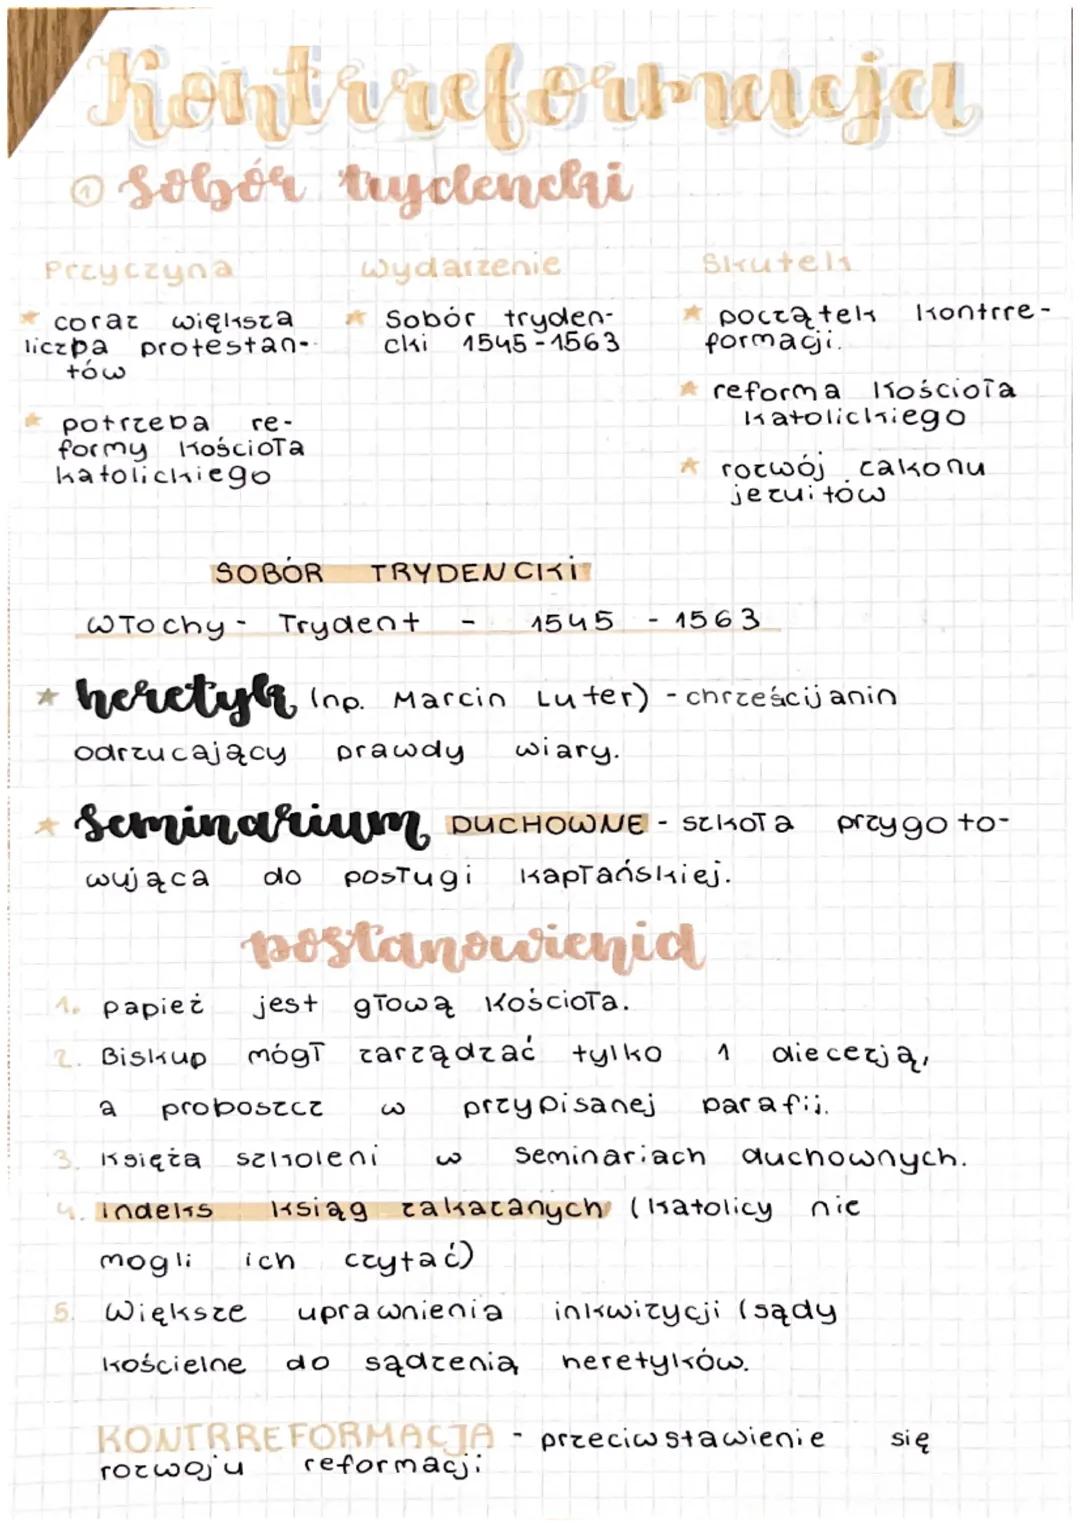 Kontrreformacja
① sobór trydencki
Przyczyna wydarzenie Skutek
* coraz większa
liczba protestan-
tów
* potrzeba re-
formy Kościoła
katolickiego
* Sobór tryden-
cki 1545-1563
* początek kontrre-
formacji.
* reforma Kościoła
katolickiego
* rozwój zakonu
jezuitów
SOBÓR TRYDENCKI
Włochy - Trydent - 1545 - 1563
* heretyk (np. Marcin Luter) - chrześcijanin
odrzucający prawdy wiary.
* Seminarium DUCHOWNE - szkoła przygoto-
wująca do posługi kapłańskiej.
postanowienia
1. papież jest głową Kościoła.
2. Biskup mógł zarządzać tylko 1 diecezją,
a proboszcz w przypisanej parafii.
3. Księża szkoleni w seminariach duchownych.
4. indeks ksiąg zakazanych (katolicy nie
mogli ich czytać)
5. Większe uprawnienia inkwizycji (sądy
kościelne do sądzenia heretyków.
KONTRREFORMACJA - przeciwstawienie się
rozwoju reformacji